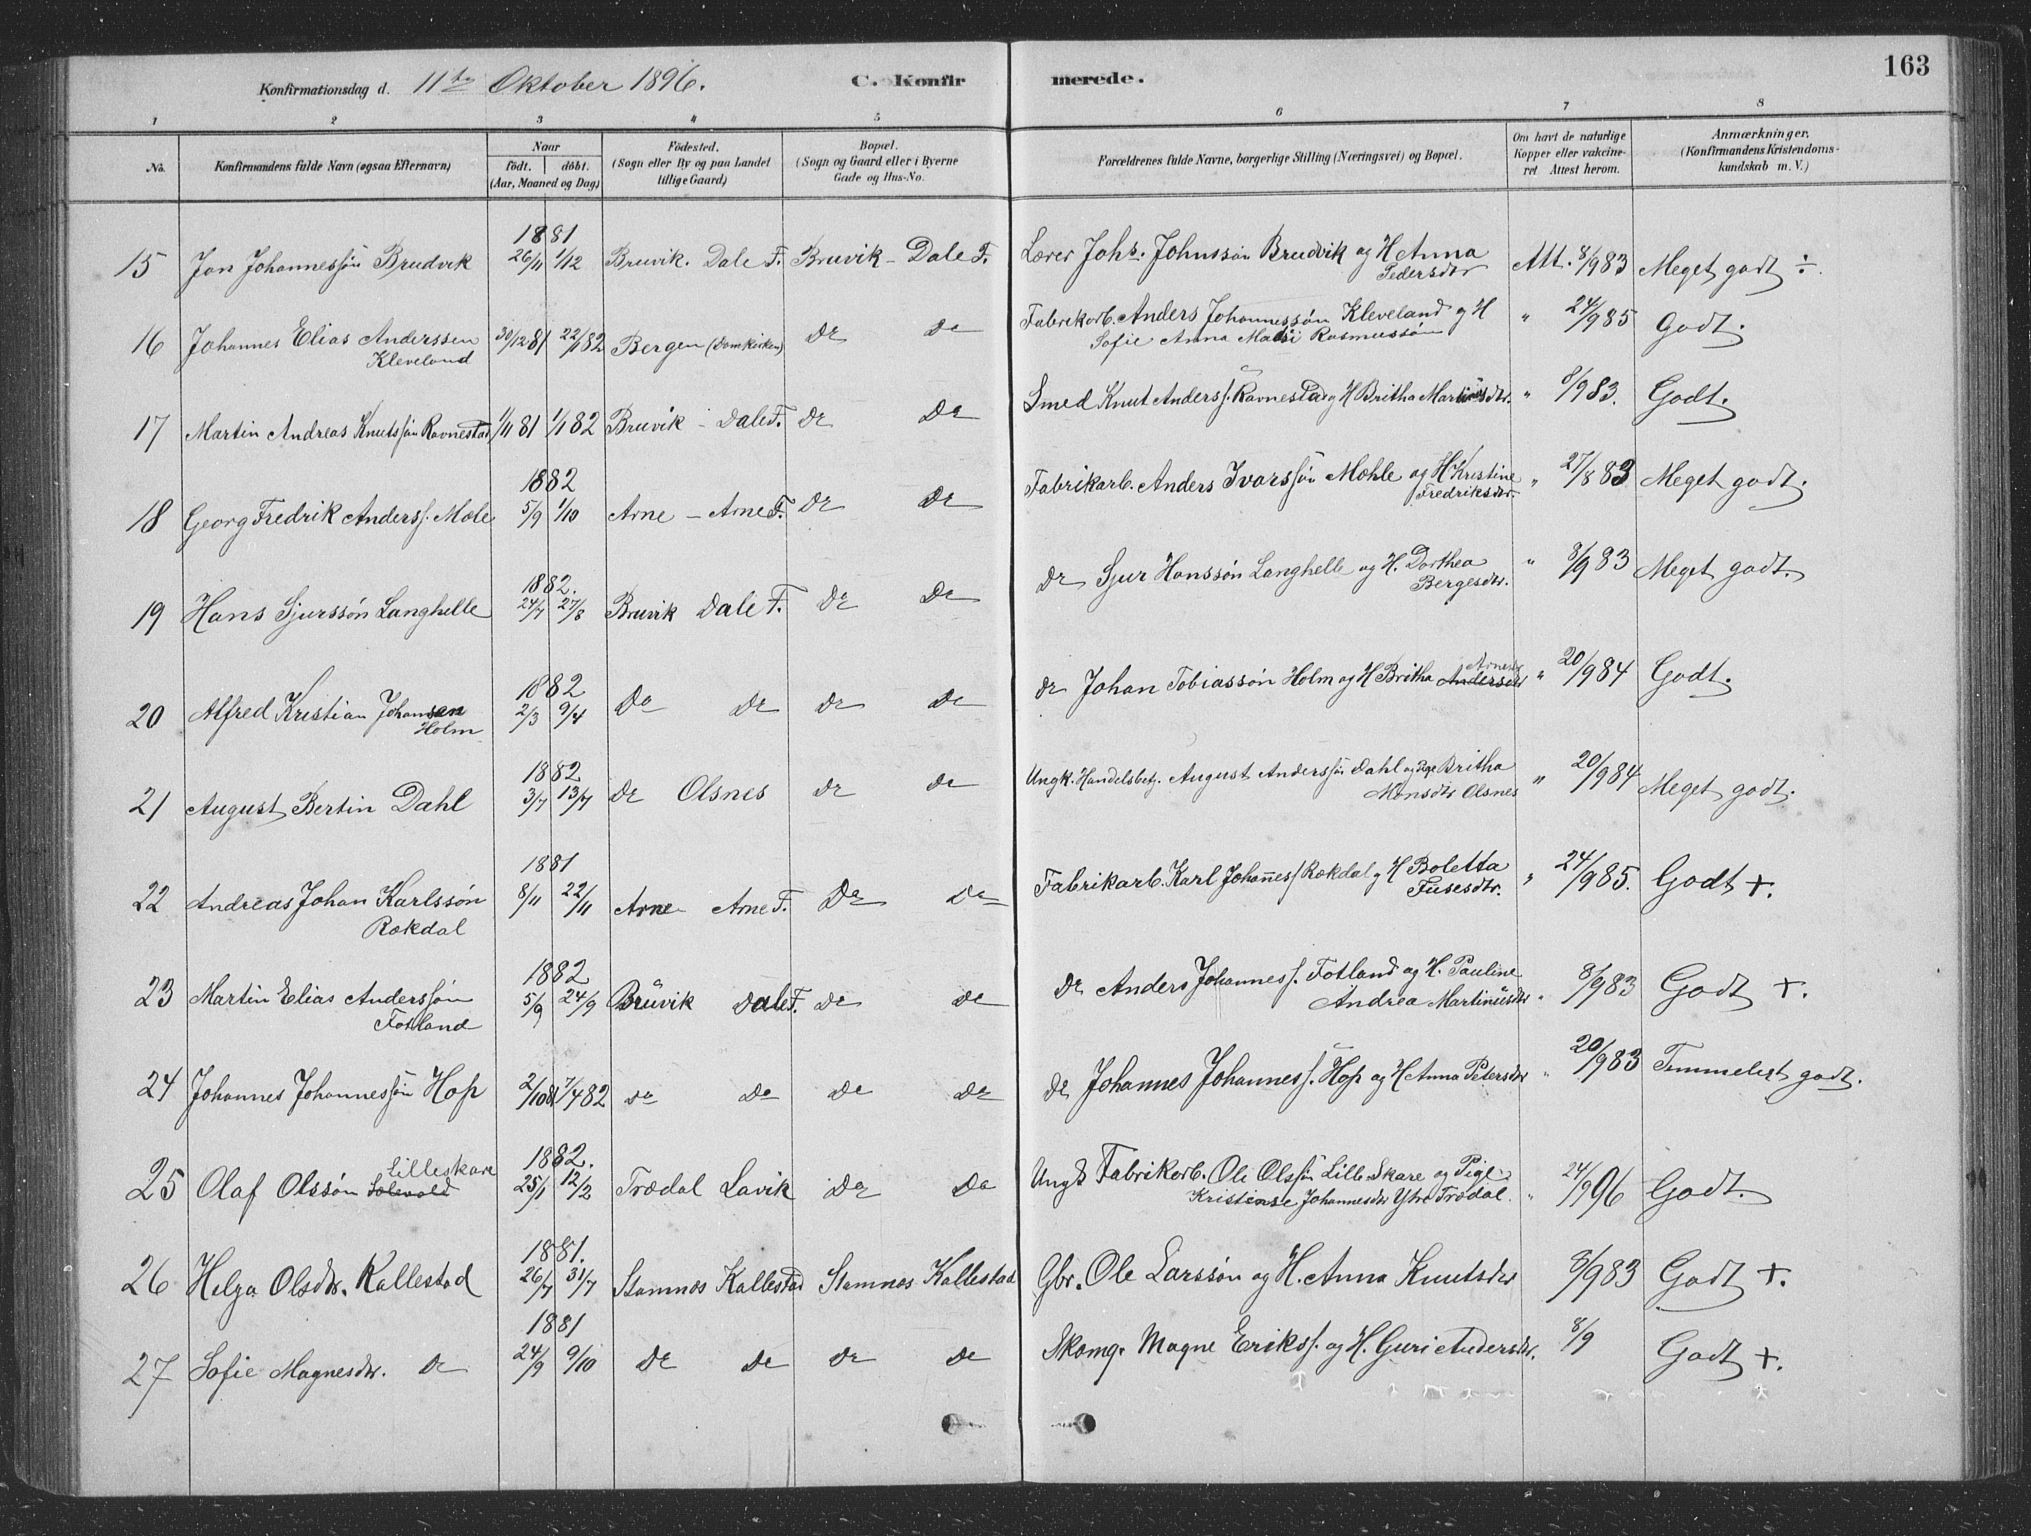 163
Konfirmationsdag d. 11te Oktober 1896. C. Konfirmerede.
1 2 3 4 5 6 7 8
No. Konfirmandens fulde Navn (ogsaa Efternavn) Naar født. døbt. (Aar, Maaned og Dag) Fødested. (Sogn eller By og paa Landet tillige Gaard) Bopæl. (Sogn og Gaard eller i Byerne Gade og Hus-No. Forældrenes fulde Navne, borgerlige Stilling (Næringsvei) og Bopæl. Om havt de naturlige Kopper eller vakcineret Attest herom. Anmærkninger. (Konfirmandens Kristendomskundskab m. V.)
15 Jon Johannessøn Brudvik 1881 26/11 1/12 Bruvik. Dale F. Bruvik - Dale F. Lærer Johs. Johnssøn Brudvik og H Anna Pedersdtr Att. 8/9 83 Meget godt ÷
16 Johannes Elias Anderssen Kleveland 30/12 81 22/1 82 Bergen (Domkirken) do do Fabrikarb. Anders Johannessøn Kleveland og H Sofie Anna Rasmussøn " 24/9 85 Godt.
17 Martin Andreas Knutssøn Ravnestad 1/11 81 1/1 82 Bruvik - Dale F. do do Smed Knut Anderss. Ravnestad og H Britha Martinusdtr. " 8/9 83. Godt.
18 Georg Fredrik Anderss. Mæle 1882 5/9 1/10 Arne - Arne F. do do Fabrikarb. Anders Ivarssøn Mæhle og H Kristine Fredriksdtr. " 27/8 83 Meget godt.
19 Hans Sjurssøn Langhelle 1882. 24/7 27/8 Bruvik Dale F. do do do Sjur Hanssøn Langhelle og H. Dorthea Bergesdtr. " 8/9 83 Meget godt.
20 Alfred Kristian Johansen Holm 1882 2/3 9/4 Do do do do do Johan Tobiassøn Holm og H Britha Andersdtr Arnesdtr " 20/9 84 Godt.
21 August Bertin Dahl 1882 3/7 13/7 do Olsnes do do Ungk. Handelsbetj. August Anderssøn Dahl og Pige Britha Monsdtr Olsnes " 20/9 84 Meget godt.
22 Andreas Johan Karlssøn Rokdal 1881 8/11 22/11 Arne Arne F. Do Do Fabrikarb. Karl Johanness. Rokdal og H Boletta Fusesdtr. " 24/9 85. Godt +.
23 Martin Elias Anderssøn Fotland 1882 5/9 24/9 Bruvik Dale F. do do do Anders Johanness. Fotland og H. Pauline Andrea Martinusdtr " 8/9 83 Godt +.
24 Johannes Johannessøn Hop 2/10 81 7/4 82 do do do do do Johannes Johanness. Hop og H Anna Petersdtr " 20/9 83 Temmeligt godt.
25 Olaf Olssøn Lilleskare 1882. 25/1 12/2 Trædal Lavik do do Ungk Fabrikarb. Ole Olssøn Lille Skare og Pige Kristense Johannesdtr Ytre Trædal. " 24/9 96 Godt.
26 Helga Olsdtr. Kallestad 1881. 26/7 31/7 Stamnæs Kallestad Stamnæs Kallestad Gbr. Ole Larssøn og H. Anna Knutsdtr 8/9 83 Godt +.
27 Sofie Magnesdtr. do 1881 24/9 9/10 do do do do Skomg. Magne Erikss. og H. Guri Andersdtr. 8/9 Godt +.